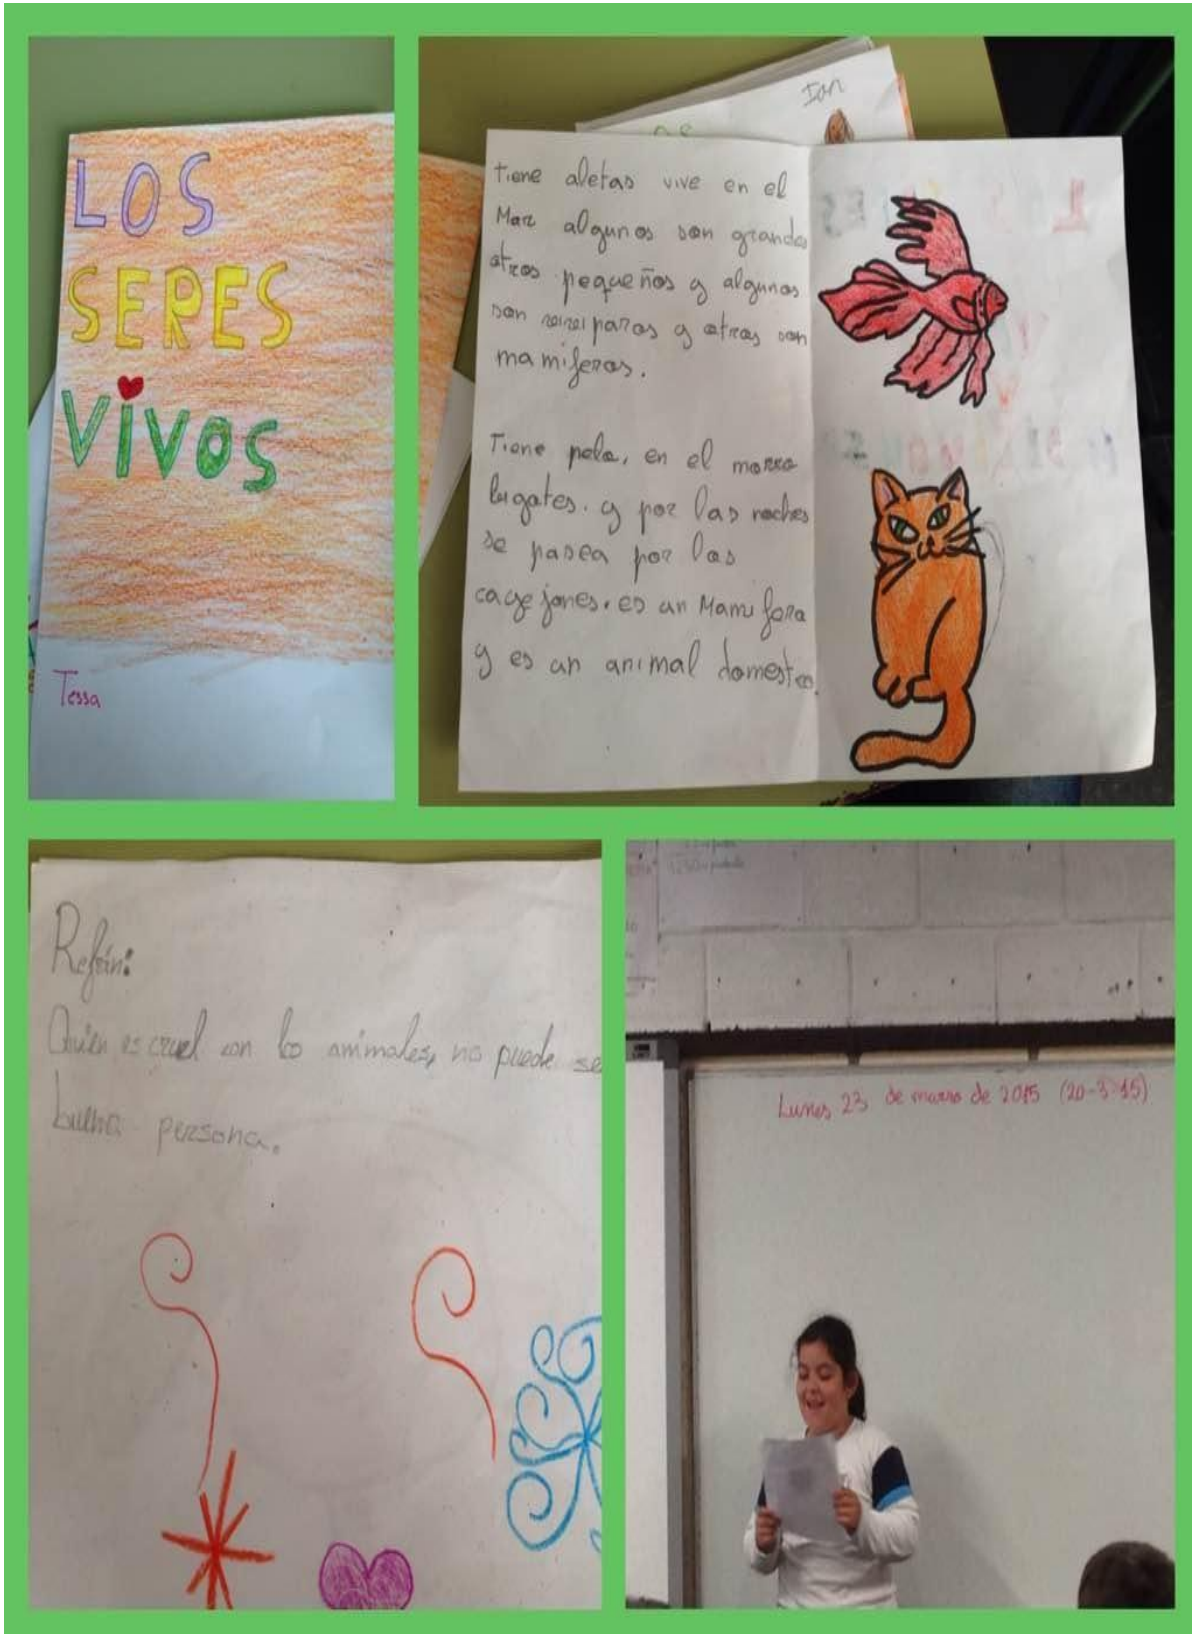 LOS
SERES
VIVOS
Tessa
Ian
Tiene aletas vive en el
Mar algunos son grandes
otros pequeños y algunos
son
paros y otros son
mamiferos.
Tiene pelo, en el morro
bigotes. y por las noches
se pasea por los
cayejones. es un Mamifero
y es un animal domestico.
Refrán:
Quien es cruel con los animales, no puede se
buena persona.
Lunes 23 de marzo de 2015 (20-3-15)